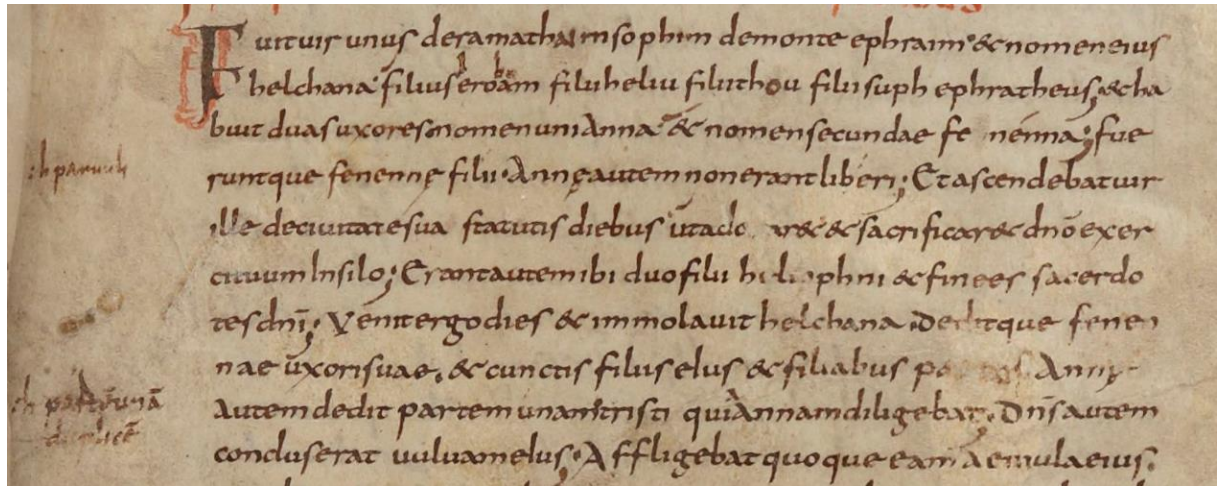 Fuit vir unus de ramathaim sophim de monte ephraim & nomen eius
helchana filius eroboam filii heliu filii thou filii suph ephratheus; & ha
buit duas uxores nomen uni Anna & nomen secundae fe nenna; fue
runtque fenennę filii. Annę autem non erant liberi; Et ascendebat vir
ille de civitate sua statutis diebus ut ado r&  & sacrificar& dnō exer
cituum In silo; Erant autem ibi duo filii heli ophni & finees sacerdo
tes dnī; Venit ergo dies & immolavit helchana. Deditque fenen
nae uxori suae, & cunctis filiis eius & filiabus Annę
Autem dedit partem unam tristi qui Annam diligebat. Dns autem
concluserat uulvam eius. Affligebat quoque eam Aemula eius.